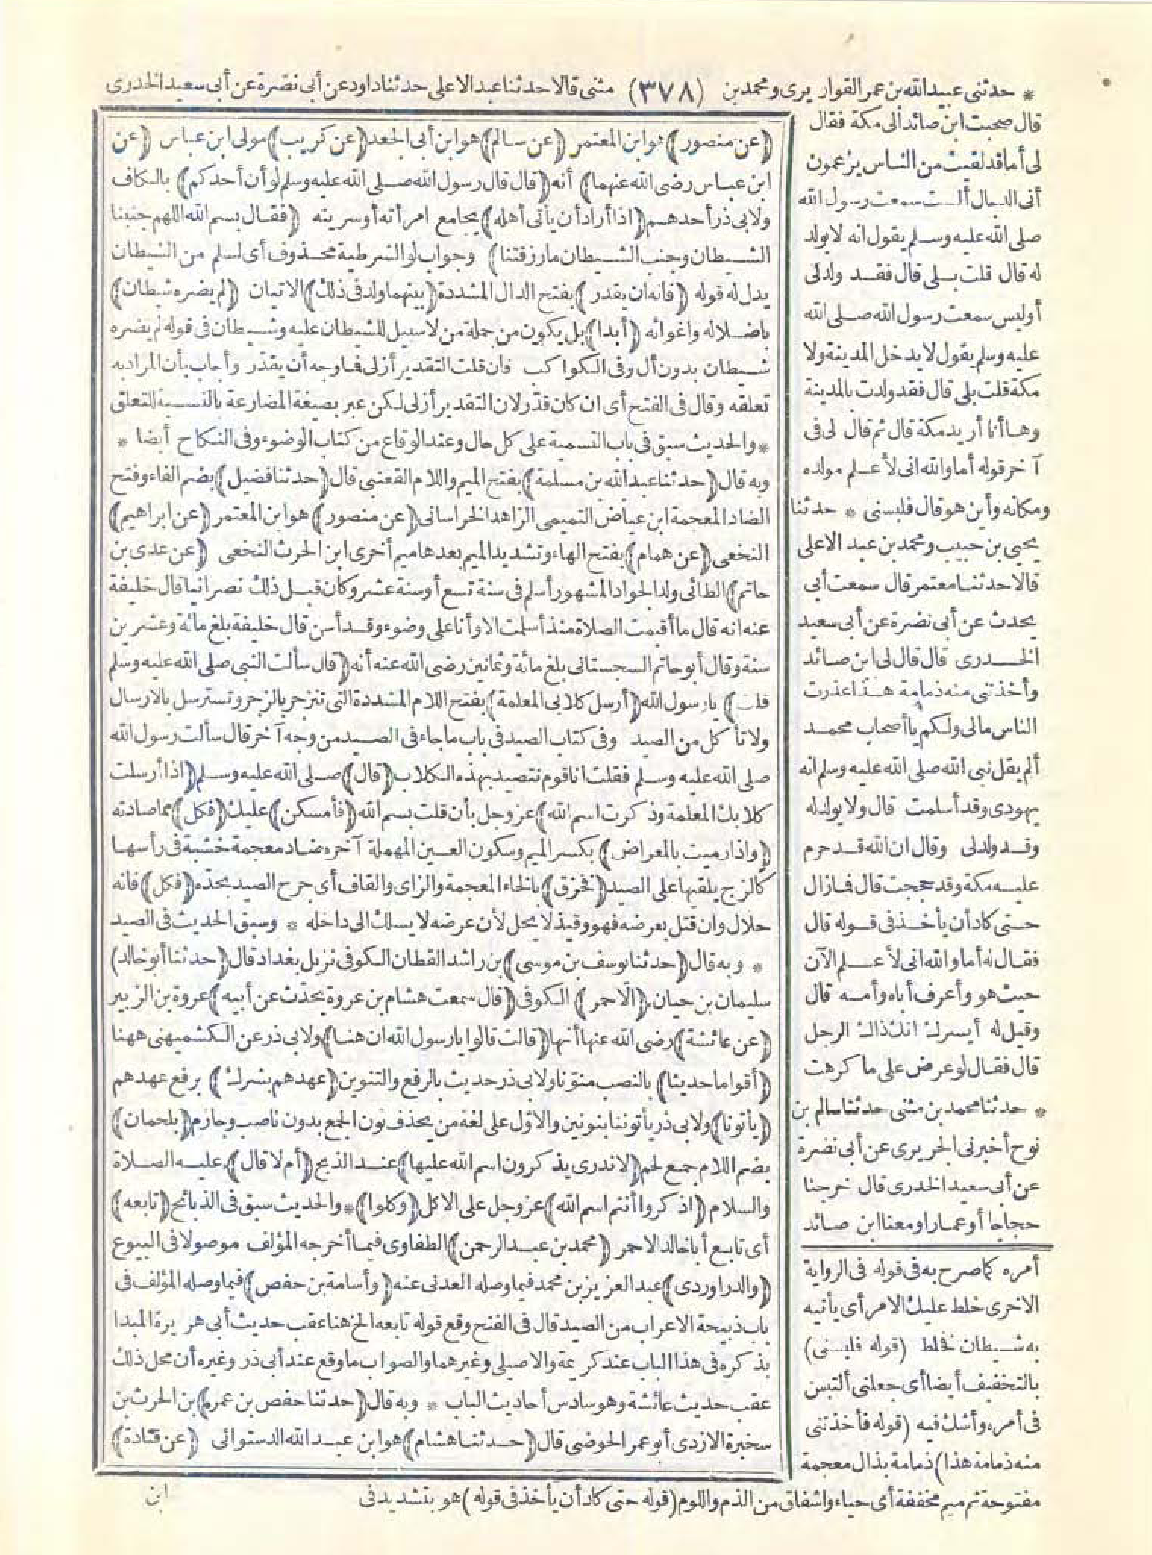 * حدثنى عبيد الله بن عمر القواريرى ومحمد بن (٣٧٨) مثنى قالا حدثنا عبد الاعلى حدثنا داود عن أبى نضرة عن أبى سعيد الخدرى
قال صحبت ابن صائد الى مكة فقال
لى أما قد لقيت من الناس يزعمون
أنى الدجال ألست سمعت رسول الله
صلى الله عليه وسلم يقول انه لا يولد
له قال قلت بلى قال فقد ولد لى
أوليس سمعت رسول الله صلى الله
عليه وسلم يقول لا يدخل المدينة ولا
مكة قلت بلى قال فقد ولدت بالمدينة
وها أنا أريد مكة قال ثم قال لى فى
آخر قوله أما والله انى لأعلم مولده
ومكانه وأين هو قال فلبسنى * حدثنا
يحيى بن حبيب ومحمد بن عبد الاعلى
قالا حدثنا معتمر قال سمعت أبى
يحدث عن أبى نضرة عن أبى سعيد
الخدرى قال قال لى ابن صائد
وأخذتنى منه ذمامة هذا عذرت
الناس مالى ولكم يا أصحاب محمد
ألم يقل نبى الله صلى الله عليه وسلم انه
يهودى وقد أسلمت قال ولا يولد له
وقد ولد لى وقال ان الله قد حرم
عليه مكة وقد حججت قال فما زال
حتى كاد أن يأخذ فى قوله قال
فقال له أما والله انى لأعلم الآن
حيث هو وأعرف أباه وأمه قال
وقيل له أيسرك انك ذاك الرجل
قال فقال لو عرض على ما كرهت
* حدثنا محمد بن مثنى حدثنا سالم بن
نوح أخبرنى الجريرى عن أبى نضرة
عن أبى سعيد الخدرى قال خرجنا
حجاجا أو عمارا ومعنا ابن صائد
أمره كما صرح به فى قوله فى الرواية
الاخرى خلط عليك الامر أى يأتيه
به شيطان فخلط (قوله فلبسنى)
بالتخفيف أيضا أى جعلنى ألتبس
فى أمره وأشك فيه (قوله فأخذتنى
منه ذمامة هذا) ذمامة بذال معجمة
مفتوحة ثم ميم مخففة أى حياء واشفاق من الذم واللوم (قوله حتى كاد أن يأخذ فى قوله) هو بتشديد فى
(عن منصور) هو ابن المعتمر (عن سالم) هو ابن أبى الجعد (عن كريب) مولى ابن عباس (عن
ابن عباس رضى الله عنهما) أنه (قال قال رسول الله صلى الله عليه وسلم لو أن أحدكم) بالكاف
ولابى ذر أحدهم (اذا أراد أن يأتى أهله) يجامع امرأته أو سريته (فقال بسم الله اللهم جنبنا
الشيطان وجنب الشيطان ما رزقتنا) وجواب لو الشرطية محذوف أى لسلم من الشيطان
يدل له قوله (فانه ان يقدر) بفتح الدال المشددة (بينهما ولد فى ذلك) الاتيان (لم يضره شيطان)
باضلاله واغوائه (أبدا) بل يكون من جملة من لا سبيل للشيطان عليه وشيطان فى قوله لم يضره
شيطان بدون أل وفى الكواكب فان قلت التقدير أزلى فما وجه أن يقدر وأجاب بأن المراد به
تعلقه وقال فى الفتح أى ان كان قدر لان التقدير أزلى لكن عبر بصيغة المضارعة بالنسبة للتعلق
* والحديث سبق فى باب التسمية على كل حال وعند الوقاع من كتاب الوضوء وفى النكاح أيضا *
وبه قال (حدثنا عبد الله بن مسلمة) بفتح الميم واللام القعنبى قال (حدثنا فضيل) بضم الفاء وفتح
الضاد المعجمة ابن عياض التميمى الزاهد الخراسانى (عن منصور) هو ابن المعتمر (عن ابراهيم)
النخعى (عن همام) بفتح الهاء وتشديد الميم بعدها ميم أخرى ابن الحرث النخعى (عن عدى بن
حاتم) الطائى ولد الجواد المشهور أسلم فى سنة تسع أو سنة عشر وكان قبل ذلك نصرانيا قال خليفة
عنه انه قال ما أقيمت الصلاة منذ أسلمت الا وأنا على وضوء وقد أسن قال خليفة بلغ مائة وعشرين
سنة وقال أبو حاتم السجستانى بلغ مائة وثمانين رضى الله عنه أنه (قال سألت النبى صلى الله عليه وسلم
قلت) يا رسول الله (أرسل كلابى المعلمة) بفتح اللام المشددة التى تنزجر بالزجر وتسترسل بالارسال
ولا تأكل من الصيد وفى كتاب الصيد فى باب ما جاء فى الصيد من وجه آخر قال سألت رسول الله
صلى الله عليه وسلم فقلت انا قوم نتصيد بهذه الكلاب (قال) صلى الله عليه وسلم (اذا أرسلت
كلابك المعلمة وذكرت اسم الله) عز وجل بأن قلت بسم الله (فأمسكن) عليك (فكل) مما صادته
(واذا رميت بالمعراض) بكسر الميم وسكون العين المهملة آخره ضاد معجمة خشبة فى رأسها
كالزج يلقيها على الصيد (فخزق) بالخاء المعجمة والزاى والقاف أى جرح الصيد بحده (فكل) فانه
حلال وان قتل بعرضه فهو وقيذ لا يحل لأن عرضه لا يسلك الى داخله * وسبق الحديث فى الصيد
* وبه قال (حدثنا يوسف بن موسى) بن راشد القطان الكوفى نزيل بغداد قال (حدثنا أبو خالد)
سليمان بن حيان (الاحمر) الكوفى (قال سمعت هشام بن عروة يحدث عن أبيه) عروة بن الزبير
(عن عائشة) رضى الله عنها أنها (قالت قالوا يا رسول الله ان هنا) ولابى ذر عن الكشميهنى ههنا
(أقواما حديثا) بالنصب منونا ولابى ذر حديث بالرفع والتنوين (عهدهم بشرك) برفع عهدهم
(يأتونا) ولابى ذر يأتوننا بنونين والاول على لغة من يحذف نون الجمع بدون ناصب وجازم (بلحمان)
بضم اللام جمع لحم (لا ندرى يذكرون اسم الله عليها) عند الذبح (أم لا قال) عليه الصلاة
والسلام (اذكروا أنتم اسم الله) عز وجل على الاكل (وكلوا) * والحديث سبق فى الذبائح (تابعه)
أى تابع أبا خالد الاحمر (محمد بن عبد الرحمن) الطفاوى فيما أخرجه المؤلف موصولا فى البيوع
(والدراوردى) عبد العزيز بن محمد فيما وصله العدنى عنه (وأسامة بن حفص) فيما وصله المؤلف فى
باب ذبيحة الاعراب من الصيد قال فى الفتح وقع قوله تابعه الخ هنا عقب حديث أبى هريرة المبدا
بذكره فى هذا الباب عند كريمة والاصيلى وغيرهما والصواب ما وقع عند أبى ذر وغيره أن محل ذلك
عقب حديث عائشة وهو سادس أحاديث الباب * وبه قال (حدثنا حفص بن عمر) بن الحرث بن
سخبرة الازدى أبو عمر الحوضى قال (حدثنا هشام) هو ابن عبد الله الدستوائى (عن قتادة)
ابن